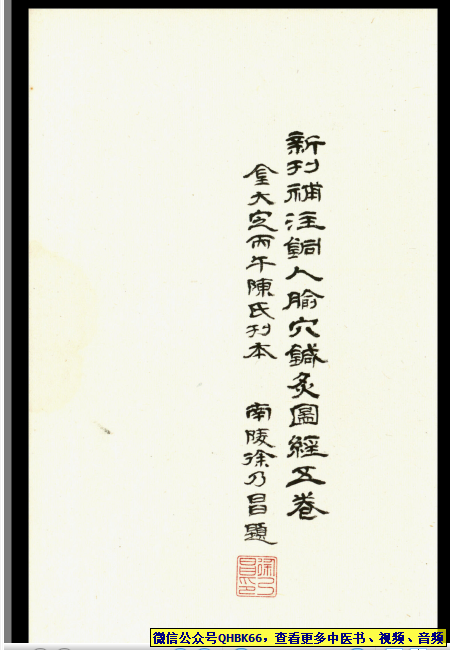 新刊補注銅人腧穴鍼灸圖經五卷
金大定丙午陳氏刊本
南陵徐乃昌題
徐乃昌印
微信公众号QHBK66，查看更多中医书、视频、音频